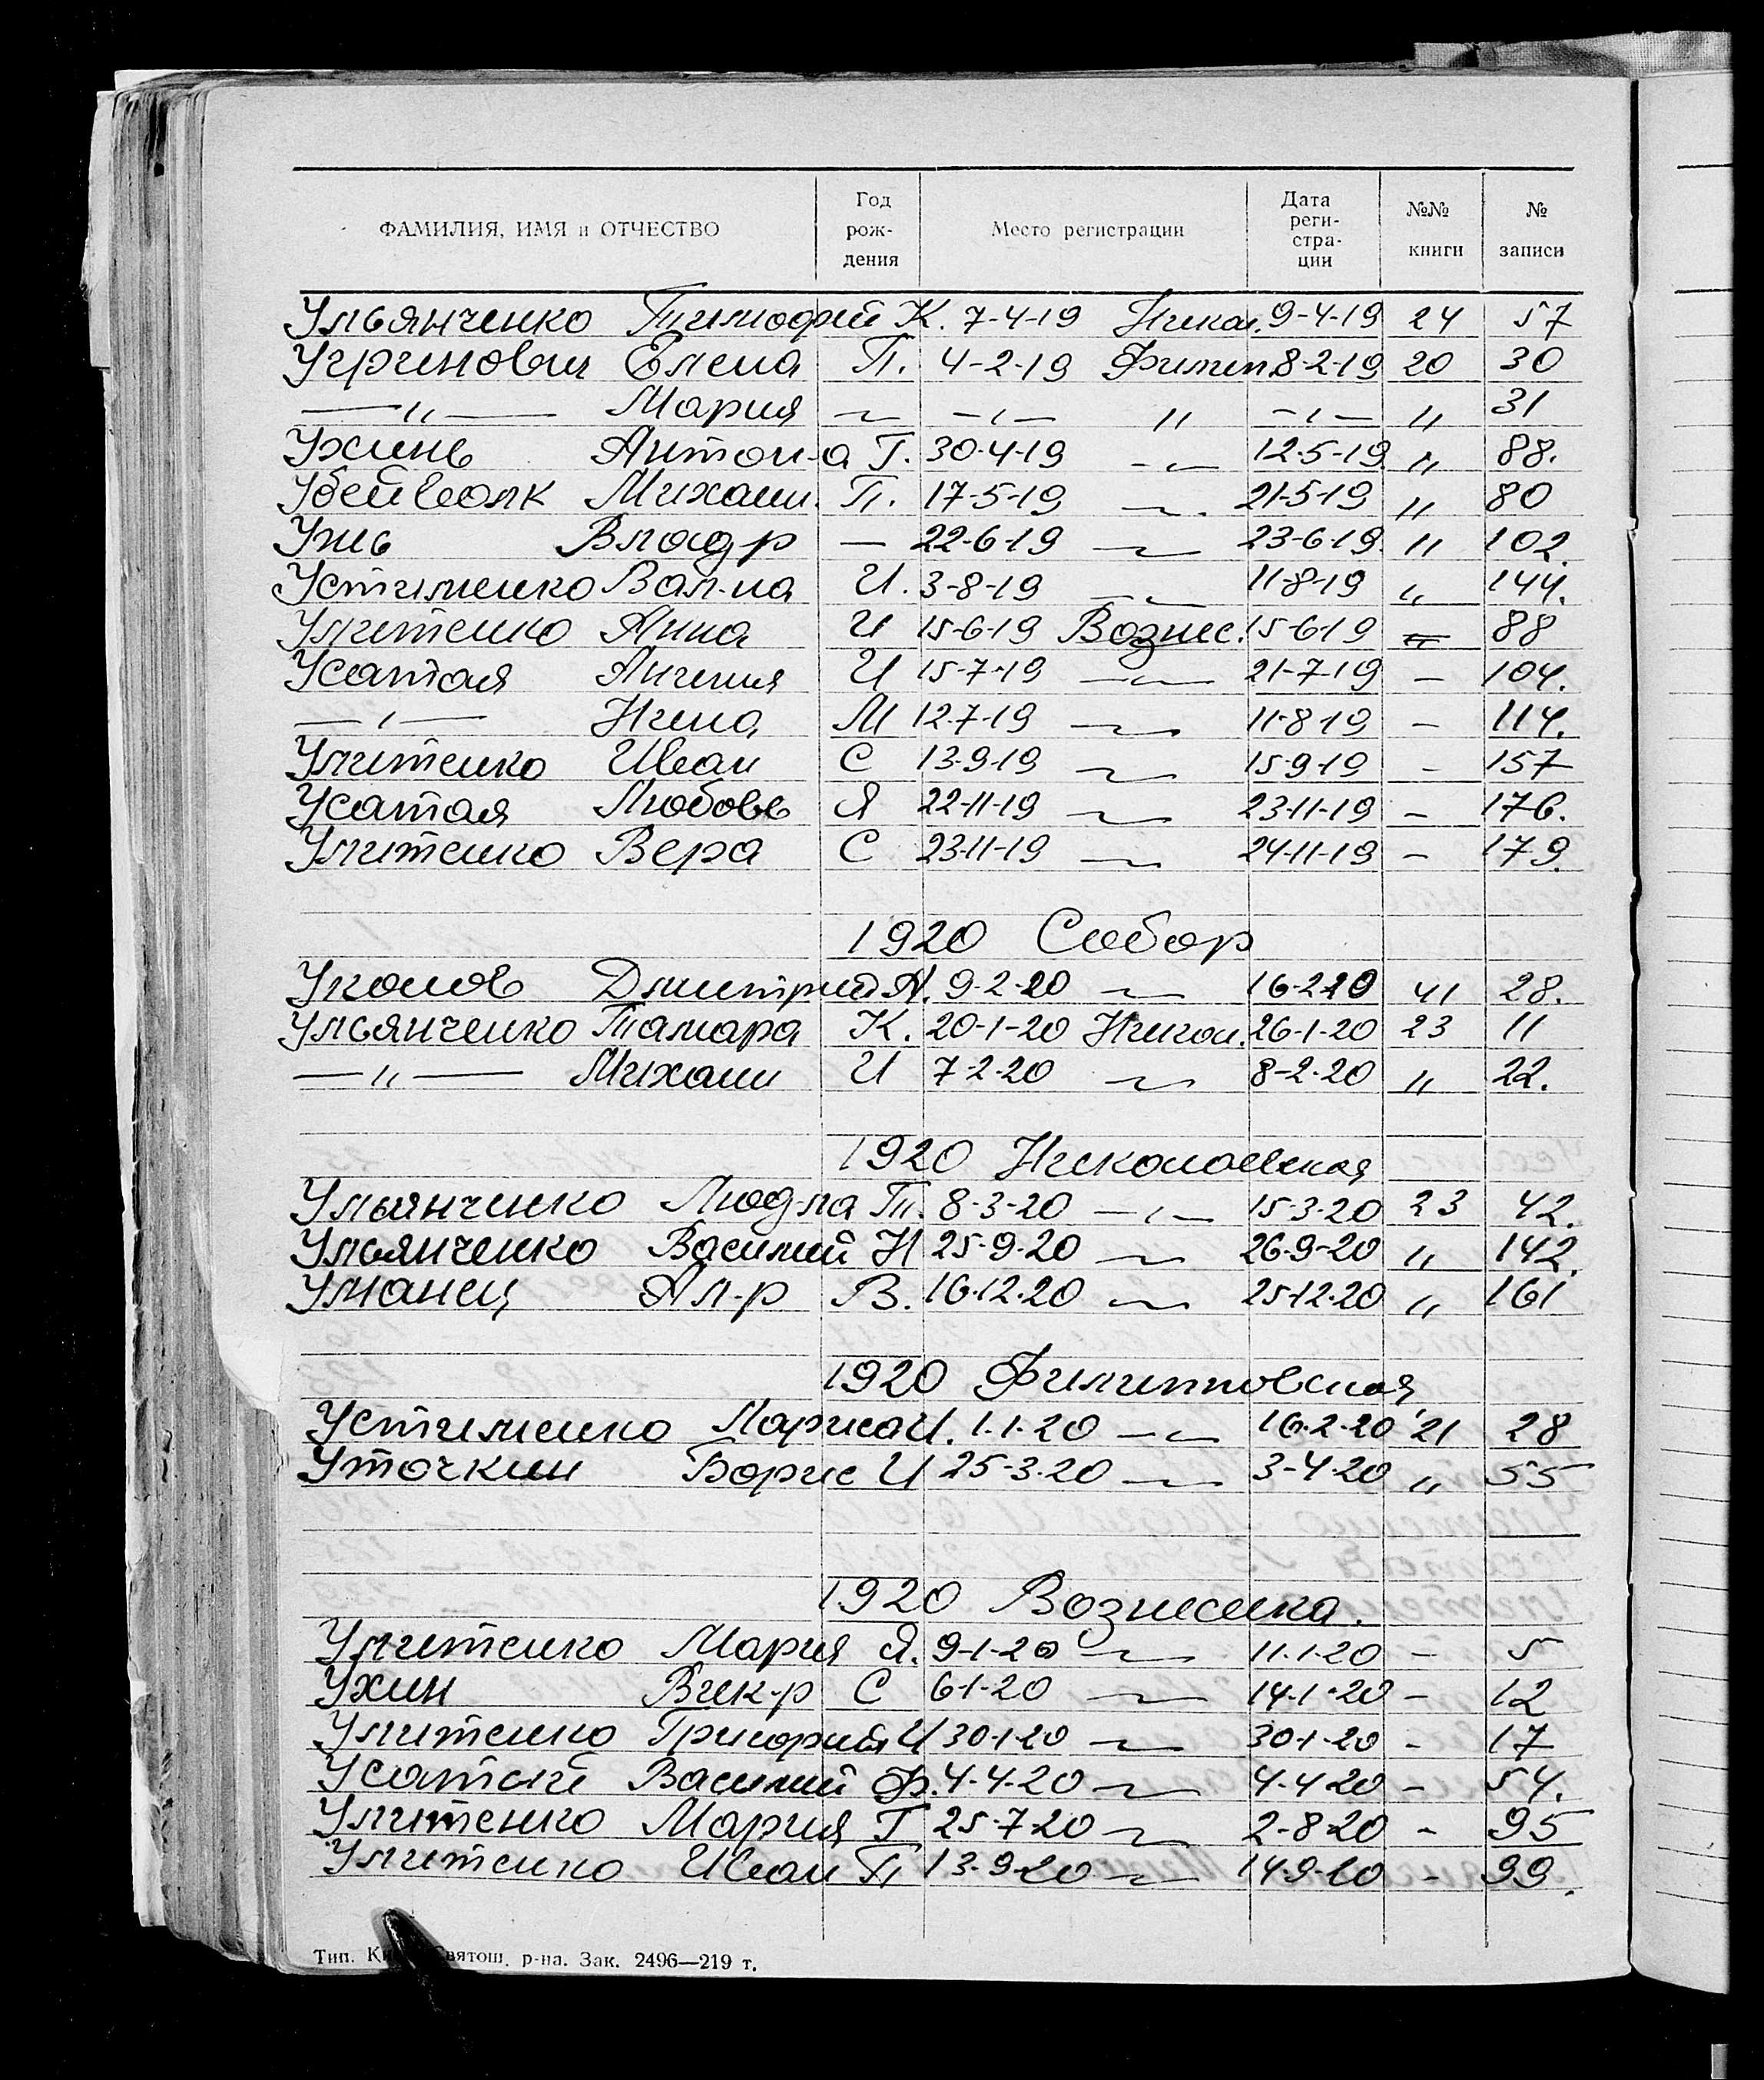 ФАМИЛИЯ, ИМЯ и ОТЧЕСТВО Год рождения Место регистрации Дата регистрации №№ книги № записи
Ульянченко Тимофей К. 7-4-19 Никол. 9-4-19 24 57
Угринович Елена П. 4-2-19 Филип. 8-2-19 20 30
—〃— Мария ~ —〃— 〃 —〃— 〃 31
Ухинь Антон-а Г. 30-4-19 —〃— 12-5-19 〃 88.
Убейволк Михаил. П. 17-5-19 —〃— 21-5-19 〃 80
Ужь Владр — 22-6-19 —〃— 23-6-19. 〃 102.
Устименко Вал-на И. 3-8-19 —〃— 11-8-19 〃 144.
Улитенко Анна И 15-6-19 Вознес. 15-6-19 〃 88
Усатая 15-7-19 —〃— 21-7-19 — 104.
—〃— Нина М 12-7-19 —〃— 11-8-19 — 114.
Улитенко Иван С 13-9-19 —〃— 15-9-19 — 157
Усатая Любовь Я 22-11-19 —〃— 23-11-19 — 176.
Улитенко Вера С 23-11-19 —〃— 24-11-19 — 179.
1920 Собор
Уколов Дмитрий А. 9-2-20 —〃— 16-2-20 41 28.
Ульянченко Тамара К. 20-1-20 Никол. 26-1-20 23 11
—〃— Михаил И 7-2-20 —〃— 8-2-20 〃 22.
1920 Николаевская
Ульянченко Люд-ла Т. 8-3-20 —〃— 15-3-20 23 42.
Ульянченко Василий Н 25-9-20 —〃— 26-9-20 〃 142.
Уманец Ал-р В. 16-12-20 —〃— 25-12-20 〃 161
1920 Филипповская
Устименко Лариса И. 1-1-20 —〃— 16-2-20 21 28
Уточкин Борис И 25-3-20 —〃— 3-4-20 〃 55
1920 Вознесенка.
Улитенко Мария Я. 9-1-20 —〃— 11-1-20 — 5
Ухин Вик-р С 6-1-20 —〃— 14-1-20 — 12
Улитенко Григорий И 30-1-20 —〃— 30-1-20 — 17
Усатый Василий Ф. 4-4-20 —〃— 4-4-20 — 54.
Улитенко Мария Г 25-7-20 —〃— 2-8-20 — 95
Улитенко Иван П 13-9-20 —〃— 14-9-20 — 99.
Тип. Святош. р-на. Зак. 2496—219 т.